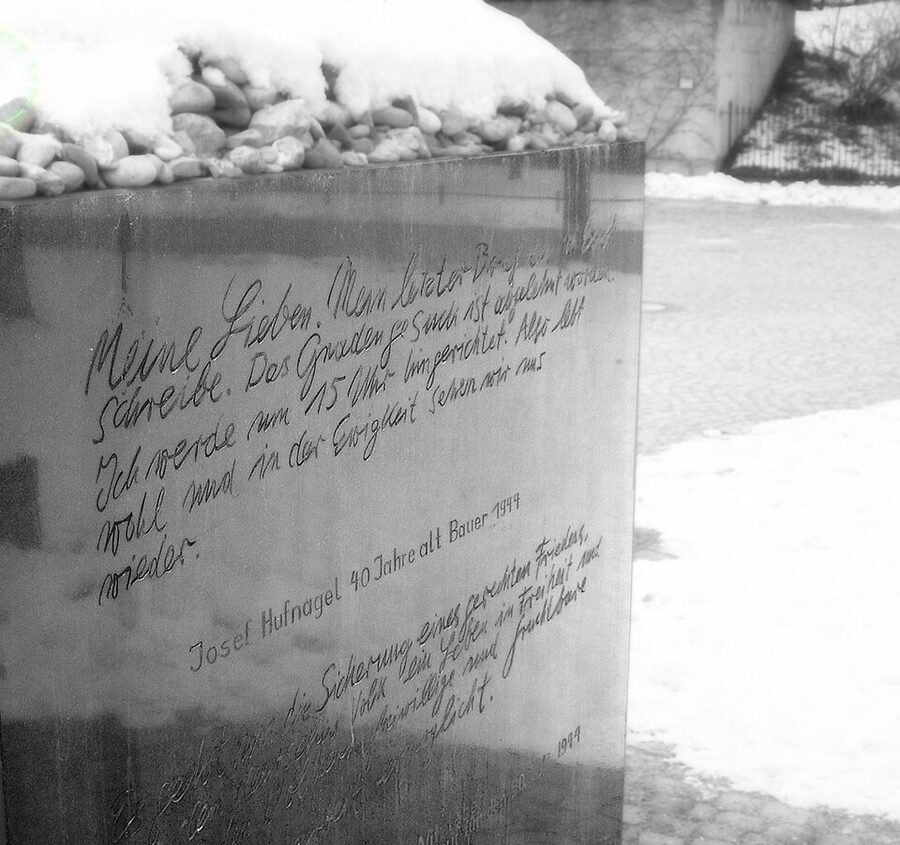 Meine Lieben. Mein letzter Brief den ich euch
schreibe. Das Gnadengesuch ist abgelehnt worden.
Ich werde um 15 Uhr hingerichtet. Also lebt
wohl und in der Ewigkeit sehen wir uns
wieder.
Josef Hufnagel 40 Jahre alt Bauer 1944
Es geht um die Sicherung eines gerechten Friedens,
Volk ein Leben in Freiheit und
freiwillige und fruchtbare
ermöglicht.
1944